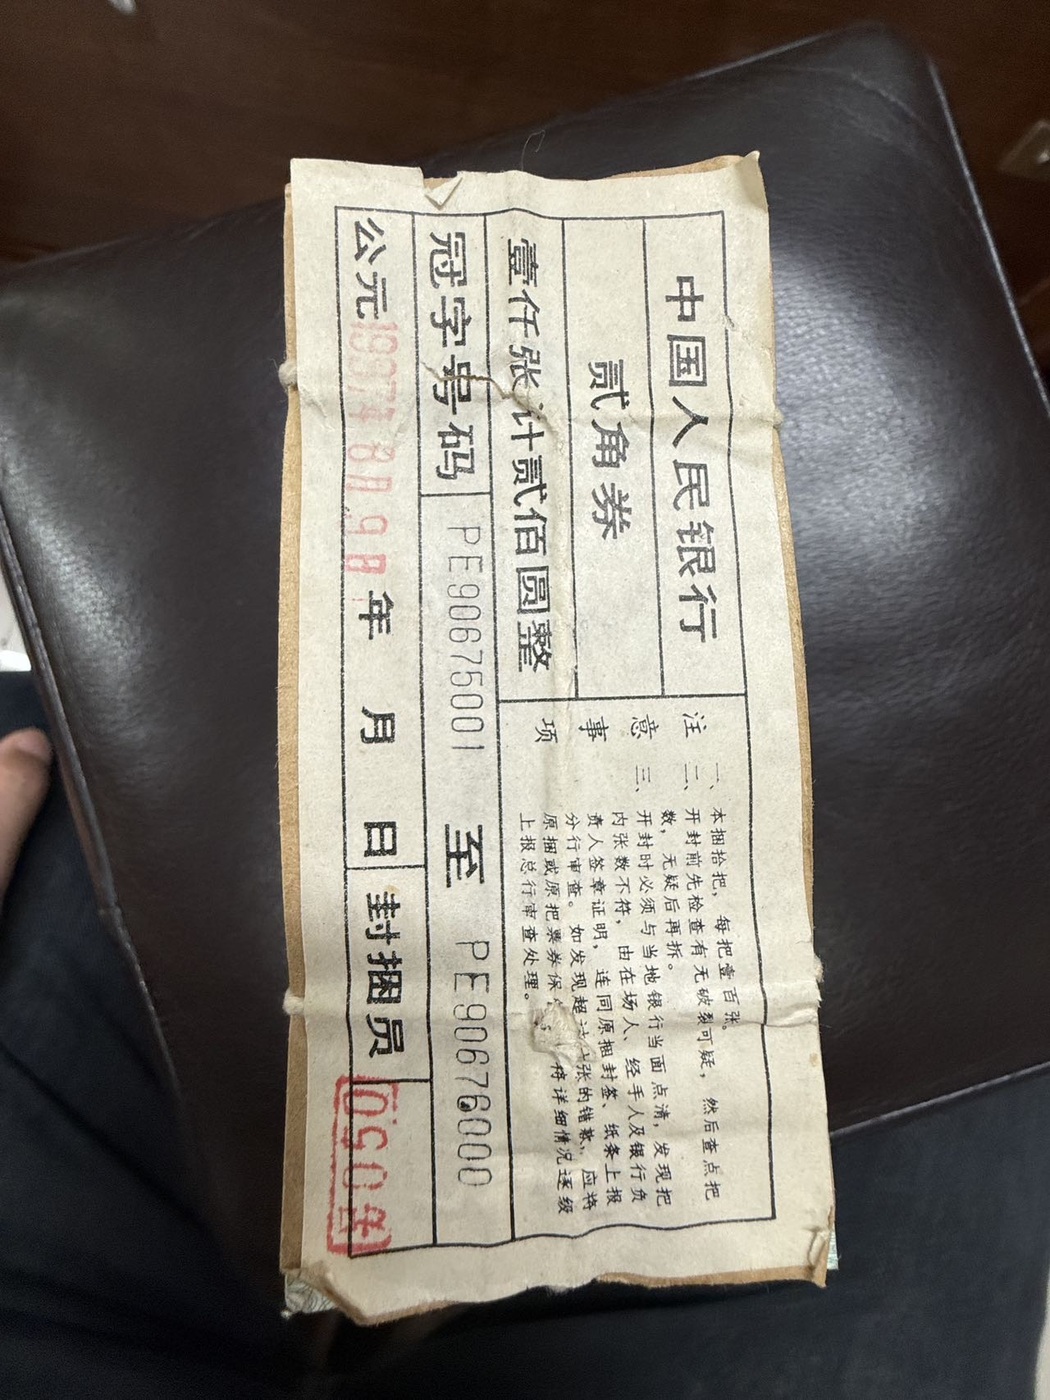 中国人民银行
贰角券
壹仟张计贰佰圆整
注意事项
一、本捆拾把，每把壹百张。
二、开封前先检查有无破裂可疑，然后查点把
数，无疑后再拆。
三、开封时必须与当地银行当面点清，发现把
内张数不符，由在场人、经手人及银行负
责人签章证明，连同原捆封签、纸条上报
分行审查。如发现超过 张的错款，应将
原捆或原把票券保 将详细情况逐级
上报总行审查处理。
冠字号码 PE90675001 至 PE90676000
公元 年 月 日 封捆员